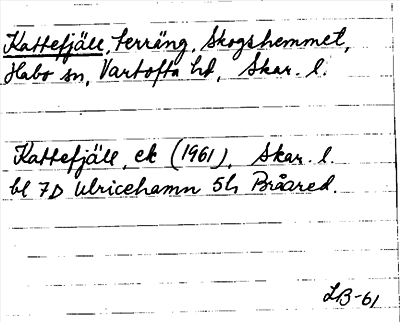 Kattefjäll, terräng, Skogshemmet,
Habo sn, Vartofta hd, Skar. l.
Kattefjäll, ek (1961), Skar. l.
bl 7D Ulricehamn 5h Bråared.
LB-61